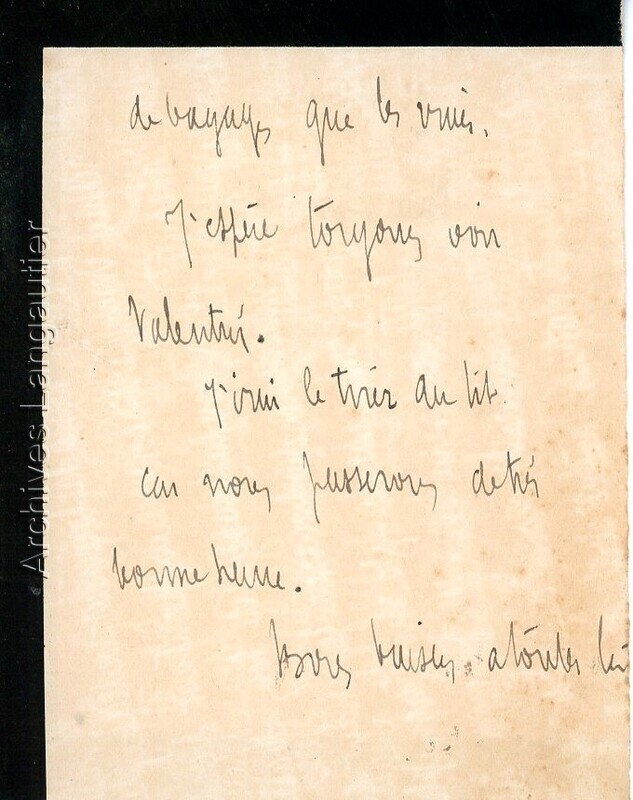 de bagages que les miens.
J'espère toujours voir
Valentin.
J'irai le tirer du lit
car nous passerons de très
bonne heure.
Bons baisers a toutes les
Archives Langautier